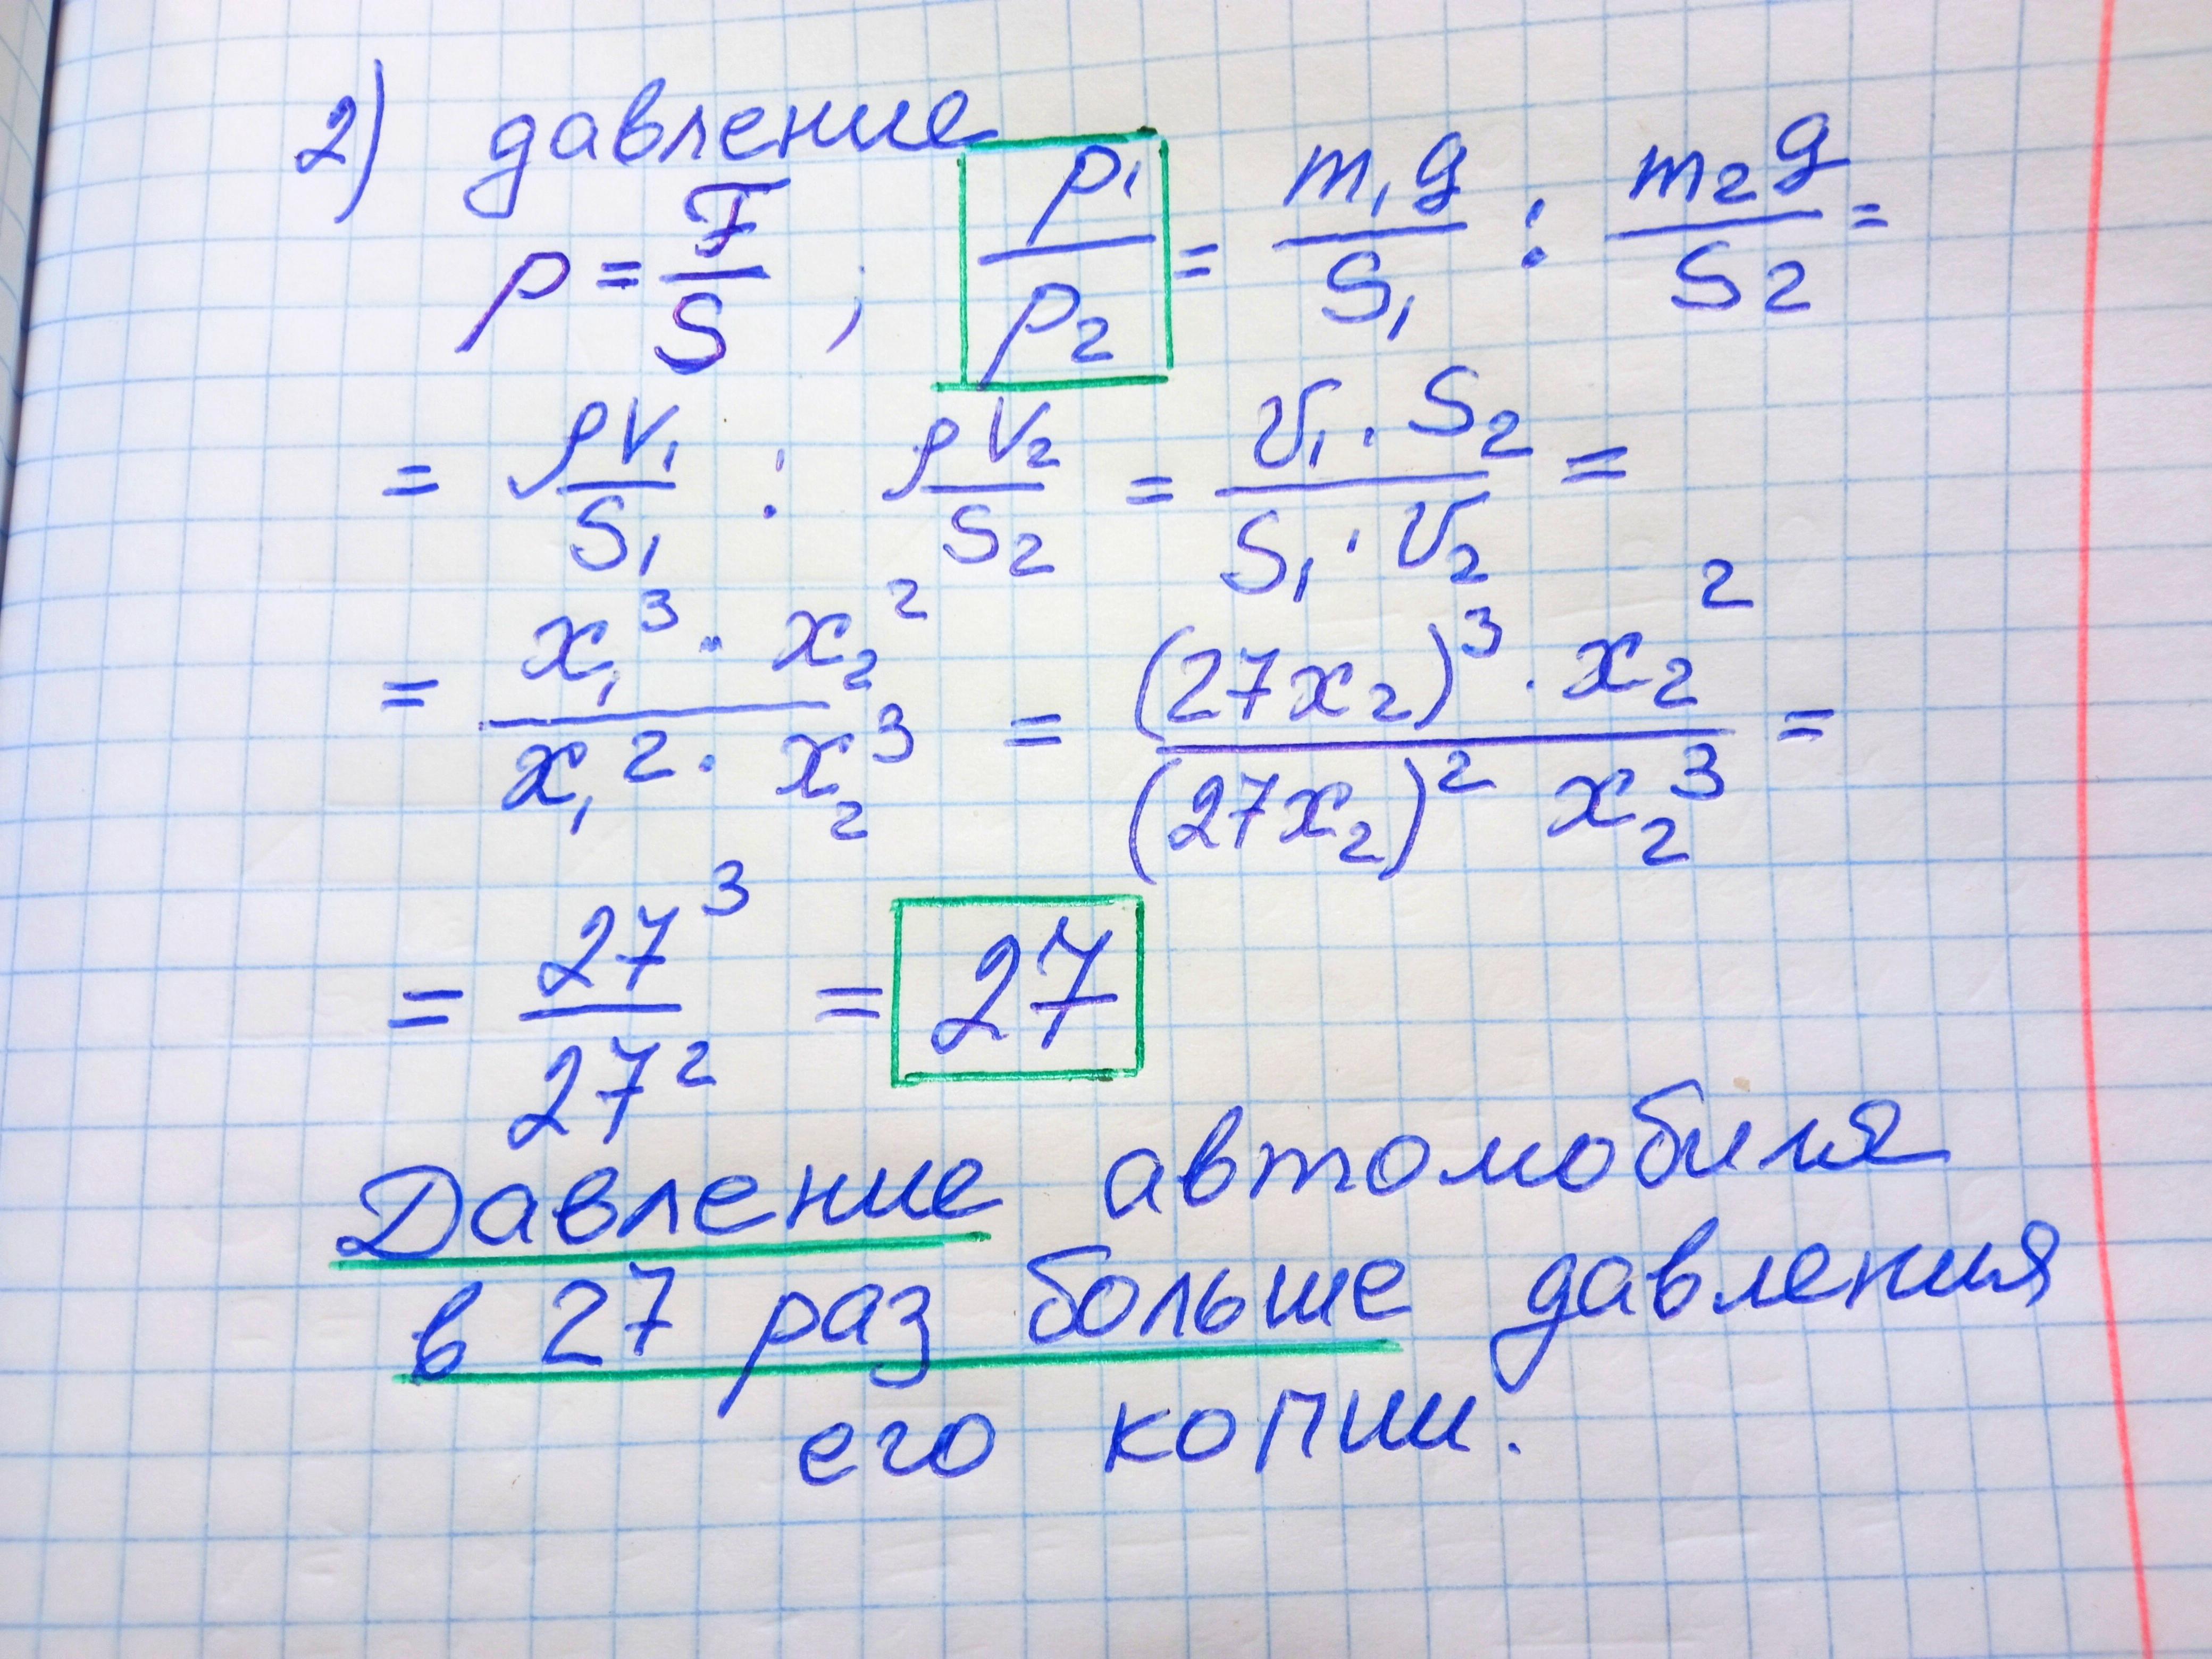 2) давление
p = F/S ; p₁/p₂ = m₁g/S₁ : m₂g/S₂ =
= ρV₁/S₁ : ρV₂/S₂ = V₁·S₂/S₁·V₂ =
= x₁³·x₂²/x₁²·x₂³ = (27x₂)³·x₂²/(27x₂)² x₂³ =
= 27³/27² = 27
Давление автомобиля
в 27 раз больше давления
его копии.